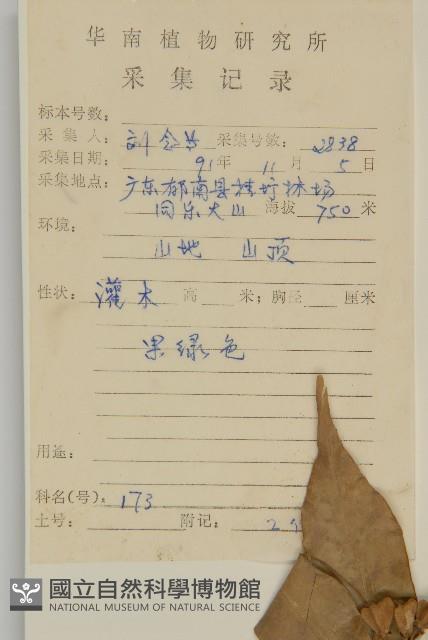 华南植物研究所
采集记录
标本号数:
采集人: 刘念 采集号数: 2838
采集日期: 91年 11月 5日
采集地点: 广东郁南县桂圩林场
同乐大山 海拔 750 米
环境:
山地 山顶
性状: 灌木 高 米; 胸径 厘米
果绿色
用途:
科名(号): 173
土号: 附记: 2
國立自然科學博物館
NATIONAL MUSEUM OF NATURAL SCIENCE